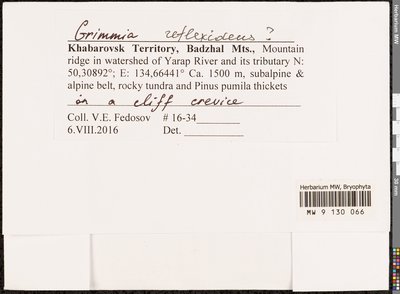 Grimmia reflexidens?
Khabarovsk Territory, Badzhal Mts., Mountain
ridge in watershed of Yarap River and its tributary N:
50,30892°; E: 134,66441° Ca. 1500 m, subalpine &
alpine belt, rocky tundra and Pinus pumila thickets
on a cliff crevice
Coll. V.E. Fedosov # 16-34
6.VIII.2016 Det.
Herbarium MW, Bryophyta
MW 9 130 066
Herbarium MW
30 mm